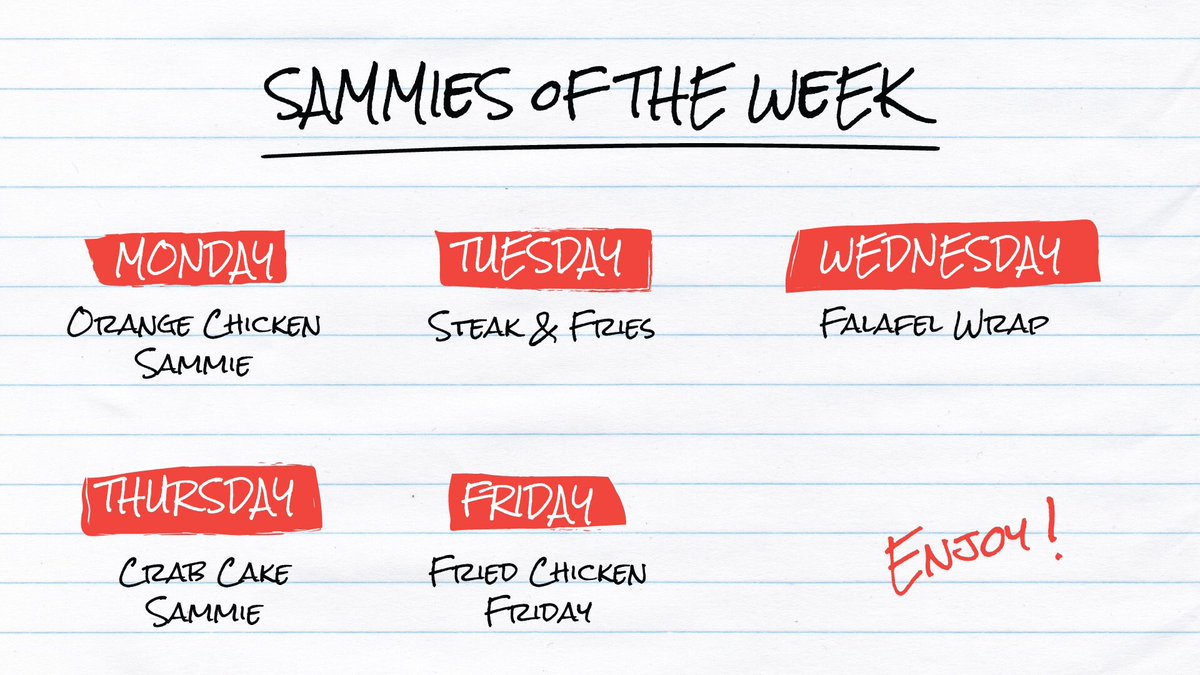 SAMMIES OF THE WEEK
MONDAY
ORANGE CHICKEN
SAMMIE
TUESDAY
STEAK & FRIES
WEDNESDAY
FALAFEL WRAP
THURSDAY
CRAB CAKE
SAMMIE
FRIDAY
FRIED CHICKEN
FRIDAY
ENJOY!